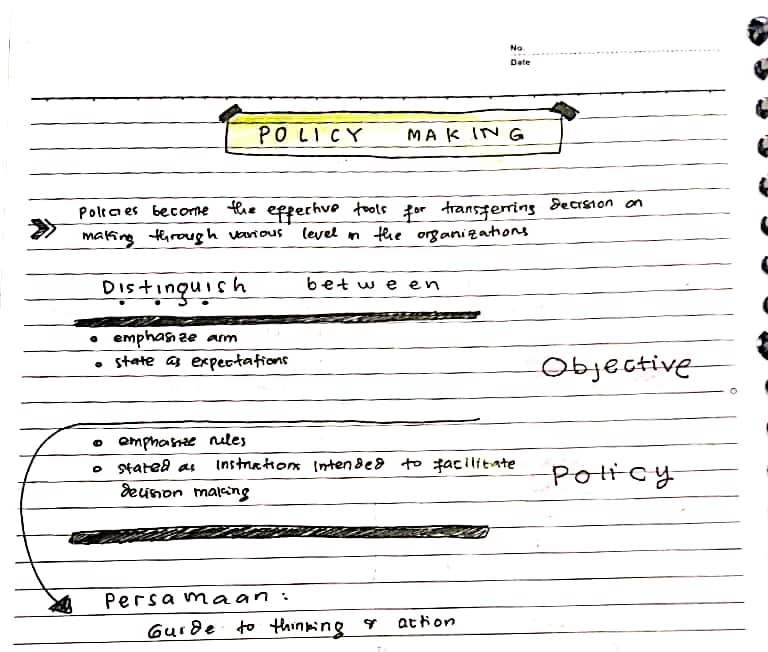 No.
Date
POLICY MAKING
Policies become the effective tools for transferring decision on
making through various level in the organizations
Distinguish between
• emphasize aim
• state as expectations
Objective
• emphasize rules
• stated as instructions intended to facilitate
decision making
Policy
Persamaan :
Guide to thinking & action